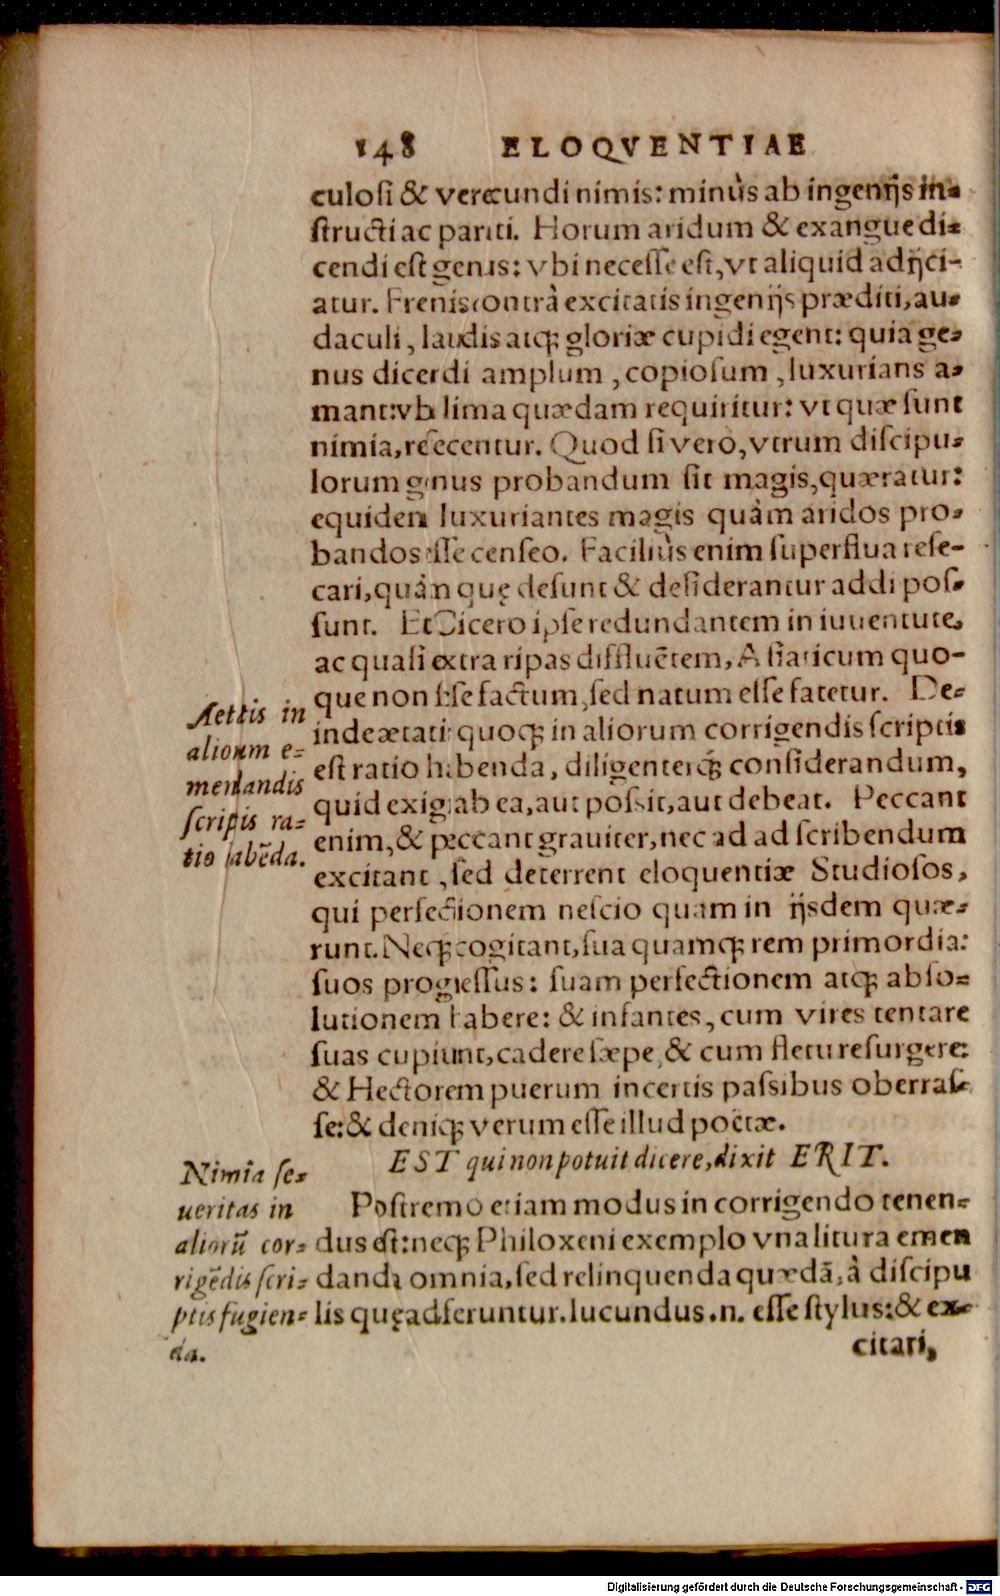 148 ELOQVENTIAE
culosi & verecundi nimis: minùs ab ingenijs in-
structi ac parati. Horum aridum & exangue di-
cendi est genus: vbi necesse est, vt aliquid adijci-
atur. Frenis contrà excitatis ingenijs præditi, au-
daculi, laudis atq; gloriæ cupidi egent: quia ge-
nus dicendi amplum, copiosum, luxurians a-
mant: vbi lima quædam requiritur: vt quæ sunt
nimia, resecentur. Quod si verò, vtrum discipu-
lorum genus probandum sit magis, quæratur:
equidem luxuriantes magis quàm aridos pro-
bandos esse censeo. Faciliùs enim superflua rese-
cari, quàm quę desunt & desiderantur addi pos-
sunt. Et Cicero ipse redundantem in iuuentute,
ac quasi extra ripas diffluẽtem, Asiaticum quo-
que non se se factum, sed natum esse fatetur. De-
inde ætatis quoq; in aliorum corrigendis scriptis
est ratio habenda, diligenterq́; considerandum,
quid exigi ab ea, aut possit, aut debeat. Peccant
enim, & peccant grauiter, nec ad ad scribendum
excitant, sed deterrent eloquentiæ Studiosos,
qui perfectionem nescio quam in ijsdem quæ-
runt. Neq; cogitant, sua quamq; rem primordia:
suos progressus: suam perfectionem atq; abso-
lutionem habere: & infantes, cum vires tentare
suas cupiunt, cadere sæpe, & cum fletu resurgere:
& Hectorem puerum incertis passibus oberras-
se: & deniq; verum esse illud poëtæ.
EST qui non potuit dicere, dixit ERIT.
Postremo etiam modus in corrigendo tenen-
dus est: neq; Philoxeni exemplo vna litura emen
danda omnia, sed relinquenda quædã, à discipu
lis quę adferuntur. Iucundus .n. esse stylus: & ex-
citari,
Aetatis in
aliorum e-
mendandis
scriptis ra-
tio habẽda.
Nimia se-
ueritas in
aliorũ cor-
rigẽdis scri-
ptis fugien-
da.
Digitalisierung gefördert durch die Deutsche Forschungsgemeinschaft - DFG